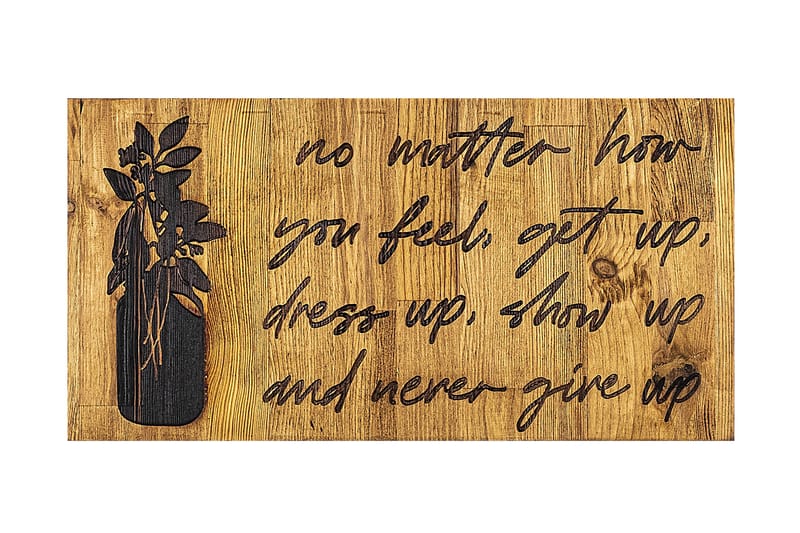 no matter how
you feel, get up,
dress up, show up
and never give up